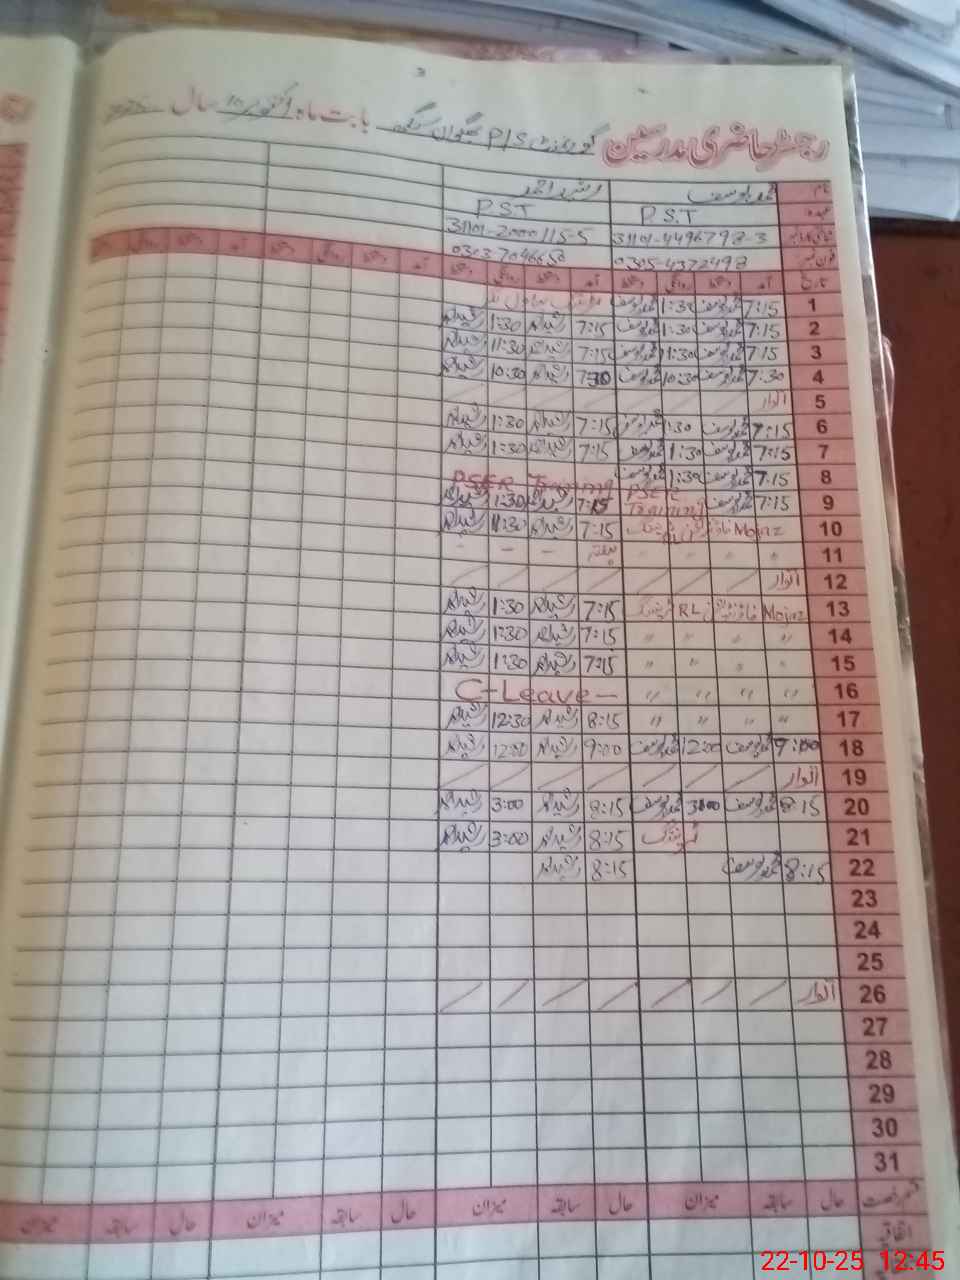 رجسٹر حاضری مدرسین گورنمنٹ P/S بھگوان سنگھ بابت ماہ اکتوبر 10 سال
نام محمد یوسف رشید احمد
عہدہ P.S.T P.S.T
31101-4496798-3 31101-2000115-5
فون نمبر 0305-4372498 0303-7046650
تاریخ آمد دستخط روانگی دستخط آمد دستخط روانگی دستخط آمد دستخط روانگی دستخط آمد دستخط روانگی دستخط
1 7:15 محمد یوسف 1:30 محمد یوسف
2 7:15 محمد یوسف 1:30 محمد یوسف 7:15 رشید احمد 1:30 رشید احمد
3 7:15 محمد یوسف 1:30 محمد یوسف 7:15 رشید احمد 11:30 رشید احمد
4 7:30 محمد یوسف 10:30 محمد یوسف 7:30 رشید احمد 10:30 رشید احمد
5 اتوار
6 7:15 محمد یوسف 1:30 محمد یوسف 7:15 رشید احمد 1:30 رشید احمد
7 7:15 محمد یوسف 1:30 محمد یوسف 7:15 رشید احمد 1:30 رشید احمد
8 7:15 محمد یوسف 1:30 محمد یوسف PSER Training
9 7:15 محمد یوسف PSER Training 7:15 رشید احمد 1:30 رشید احمد
10 Mojaz فاؤنڈیشن ٹریننگ 7:15 رشید احمد 11:30 رشید احمد
11 " " " " ہفتہ - - -
12 اتوار
13 Mojaz فاؤنڈیشن RL ٹریننگ 7:15 رشید احمد 1:30 رشید احمد
14 " " " " 7:15 رشید احمد 1:30 رشید احمد
15 " " " " 7:15 رشید احمد 1:30 رشید احمد
16 " " " " C-Leave -
17 " " " " 8:15 رشید احمد 12:30 رشید احمد
18 9:00 محمد یوسف 12:00 محمد یوسف 9:00 رشید احمد 12:00 رشید احمد
19 اتوار
20 8:15 محمد یوسف 3:00 محمد یوسف 8:15 رشید احمد 3:00 رشید احمد
21 ٹریننگ 8:15 رشید احمد 3:00 رشید احمد
22 8:15 محمد یوسف 8:15 رشید احمد
23
24
25
26 اتوار
27
28
29
30
31
قسم رخصت حال سابقہ میزان حال سابقہ میزان حال سابقہ میزان حال سابقہ میزان
اتفاقیہ
22-10-25 12:45